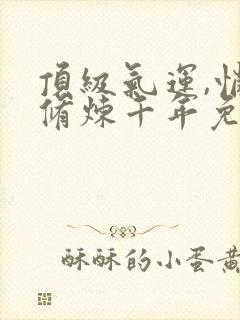 頂級氣運,
脩煉千年
酥酥的小蛋黃